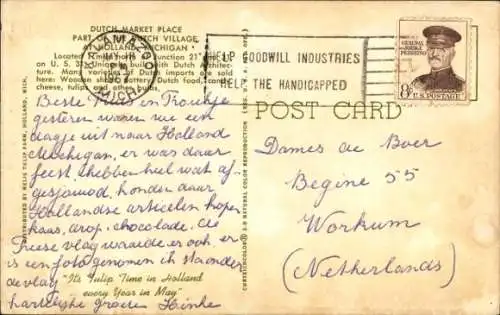 DUTCH MARKET PLACE
PART OF DUTCH VILLAGE
AT HOLLAND, MICHIGAN
Located mile north of junction 21
on U. S. 31. Unique built with Dutch Archite-
ture. Many varieties of Dutch imports are sold
here: Wooden shoes, pottery, Dutch food, candy,
cheese, tulips, and other bulbs.
KALAMAZOO
PM
MICH.
HELP GOODWILL INDUSTRIES
HELP THE HANDICAPPED
GENERAL
JOHN J. PERSHING
8¢
U.S. POSTAGE
POST CARD
Beste Mien en Troukje
gisteren waren we een
dagje uit naar Holland
Michigan, er was daar
feest, hebben heel wat af-
gesjouwd, honden daar
Hollandse artikelen kopen
kaas, drop, chocolade. De
Friese vlag waaide er ook, er
is een foto genomen ik sta onder
de vlag
hartelijke groeten Hinke
"It's Tulip Time in Holland
every Year in May"
Dames de Boer
Begine 55
Workum
(Netherlands)
DISTRIBUTED BY NELIS TULIP FARM, HOLLAND, MICH.
NATURAL COLOR REPRODUCTION